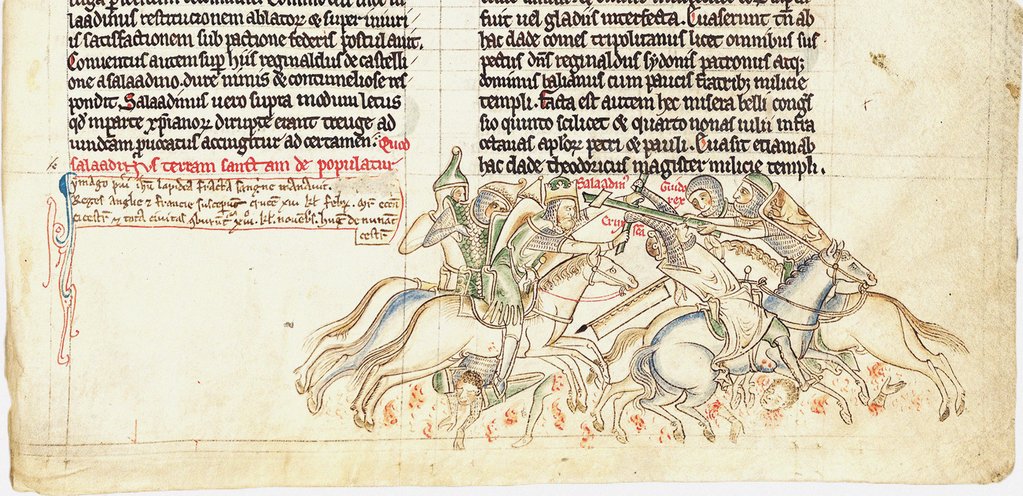 laadinus restitutionem ablatoꝝ & super iniuri
is satisfactionem sub pactione federis postulauit.
Conuentus autem sup hiis reginaldus de castelli
one a salaadino. dure nimis & contumeliose res
pondit. Salaadinus uero supra modum letus
qd in parte xpianoꝝ dirupte erant treuge ad
puocatus accingitur ad certamen. Quod
saladinus terram sanctam de populatur
ymago pui ihu lapidea fracta sangne
Reges Anglie & Francie susceput cruce xiii kl febr.
& tota ciuitas
fuit uel gladiis interfecta. Euaserunt tn ab
hac clade comes tripolitanus licet omnibus sus
pectus dns reginaldus sydonis patronus atq;
dominus balianus cum paucis fratribus milicie
templi. Facta est autem hec misera belli congres
sio quinto scilicet & quarto nonas iulii infra
octauas aploꝝ petri & pauli. Euasit etiam ab
hac clade theodoricus magister milicie templi.
Saladinus
Guido
rex
Crux
sca